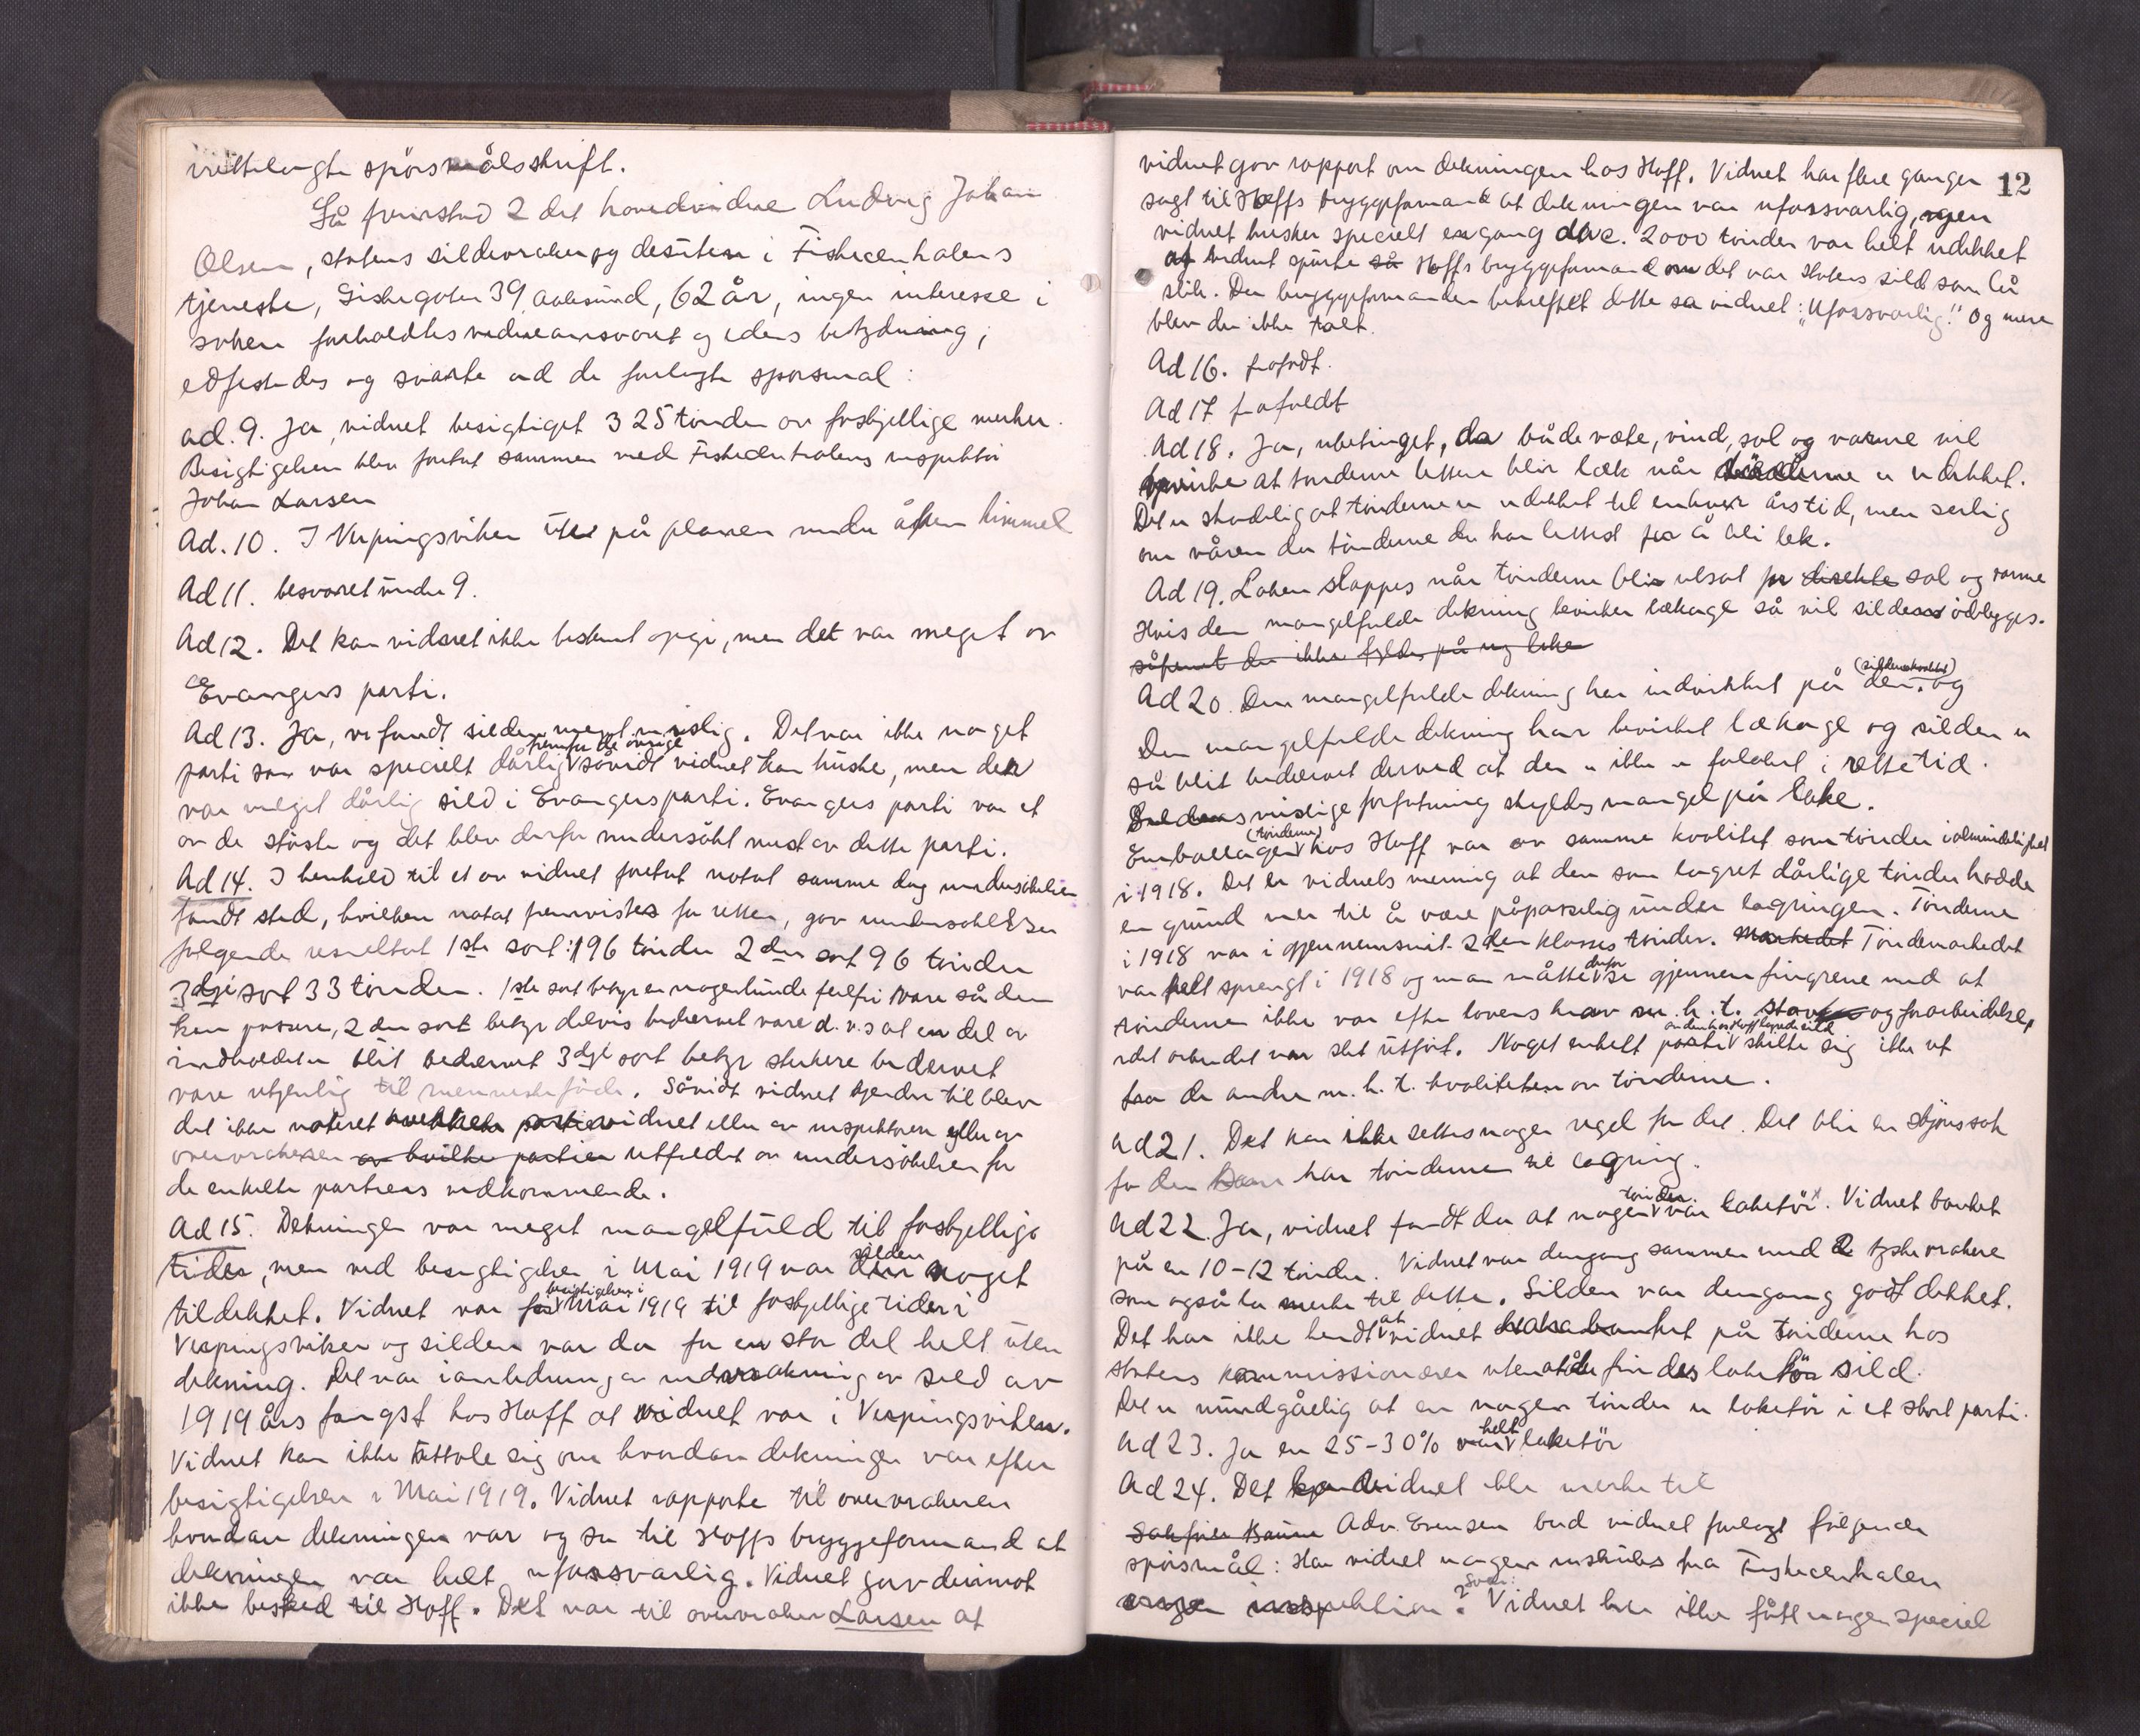 rettelagte spörsmålsskrift.
Så fremstod 2 det hovedvidne Ludvig Johan
Olsen, statens sildevraker og desuten i Fiskecentralens
tjeneste, Giskegaten 39 Aalesund, 62 år, ingen interesse i
saken forholdtes vidneansvaret og edens betydning,
edfestedes og svarte ad de forlagte spörsmal:
ad. 9. Ja, vidnet besigtiget 325 tönder av forskjellige merker.
Besigtigelsen blev foretat sammen med Fiskecentralens inspektör
Johan Larsen
Ad. 10. I Verpingsviken ute på planen under åpen himmel
Ad 11. besvaret under 9.
Ad 12. Det kan vidnet ikke bestemt opgi, men det var meget av
Evangers parti.
Ad 13. Ja, vi fandt silden meget uvislig. Det var ikke noget
parti som var specielt dårlig fremfor de övrige såvidt vidnet kan huske, men der
var meget dårlig sild i Evangers parti. Evangers parti var et
av de störste og det blev derfor undersökt mest av dette parti.
Ad 14. I henhold til et av vidnet foretat notat samme dag undersökelsen
fandt sted, hvilken notat fremvistes for retten, gav undersökelsen
fölgende resultat 1ste sort: 196 tönder 2den sort 96 tönder
3dje sort 33 tönder. 1ste sort betyr en nogenlunde feilfri vare så den
kan passere, 2den sort betyr delvis bedervet vare d.v.s at en del av
indholdet er blit bedervet 3dje sort betyr sterkere bedervet
vare utjenlig til menneskeföde. Såvidt vidnet kjender til blev
det ikke noteret av vidnet eller av inspektören eller av
overvrakeren utfaldet av undersökelsen for
de enkelte partiers vedkommende.
Ad 15. Dekningen var meget mangelfuld til forskjellige
tider, men ved besigtigelsen i Mai 1919 var silden noget
tildekket. Vidnet var för besigtigelsen i Mai 1919 til forskjellige tider i
Verpingsviken og silden var da for en stor del helt uten
dekning. Det var i anledning av vrakning av sild av
1919 års fangst hos Hoff at vidnet var i Verpingsviken.
Vidnet kan ikke uttale sig om hvordan dekningen var efter
besigtigelsen i Mai 1919. Vidnet rapporte til overvrakeren
hvordan dekningen var og sa til Hoffs bryggeformand at
dekningen var helt uforsvarlig. Vidnet gav derimot
ikke besked til Hoff. Det var til overvraker Larsen at
12
vidnet gav rapport om dekningen hos Hoff. Vidnet har flere ganger
sagt til Hoffs bryggeformand at dekningen var uforsvarlig,
vidnet husker specielt en gang da c. 2000 tönder var helt udekket
at vidnet spurte Hoffs bryggeformand om det var statens sild som lå
slik. Da bryggeformanden bekreftet dette sa vidnet: "Uforsvarlig!" Og mere
blev der ikke talt.
Ad 16. frafaldt.
Ad 17 frafaldt
Ad 18. Ja, ubetinget, da både væte, vind, sol og varme vil
bevirke at tönderne lettere blir læk når tönderne er udekket.
Det er skadelig at tönderne er udekket til enhver årstid, men serlig
om våren da tönderne da har lettest for å bli lek.
Ad 19. Laken slappes når tönderne blir utsat for direkte sol og varme
Hvis den mangelfulde dekning bevirker lækage så vil silden ödelegges.
såfremt der ikke fyldes på ny lake
Ad 20. Den mangelfulde dekning har indvirket på den (sildens kvalitet) og
Den mangelfulde dekning har bevirket lækage og silden er
så blit bedervet derved at den ikke er folaket i rette tid.
Sildens uvislige forfatning skyldes mangel på lake.
Emballagen (tönderne) hos Hoff var av samme kvalitet som tönder i almindelighet
i 1918. Det er vidnets mening at den som lagret dårlige tönder hadde
en grund mer til å være påpasselig under lagringen. Tönderne
i 1918 var i gjennemsnit 2den klasses tönder. Markedet Töndemarkedet
var helt sprengt i 1918 og man måtte derfor se gjennem fingrene med at
tönderne ikke var efter lovens krav m.h.t. og forarbeidelse,
idet arbeidet var slet utfört. Noget enkelt parti av den hos Hoff lagrede sild skilte sig ikke ut
fra de andre m.h.t. kvaliteten av tönderne.
Ad 21. Det kan ikke settes nogen regel for det. Det blir en skjönssak
for den som har tönderne til lagring.
Ad 22. Ja, vidnet fandt da at nogen tönder var laketör. Vidnet banket
på en 10-12 tönder. Vidnet var dengang sammen med 2 tyske vrakere
som også la merke til dette. Silden var dengang godt dekket.
Det har ikke hendt at vidnet har banket på tönderne hos
statens kommissionærer uten at der findes laketör sild.
Det er uundgåelig at en nogen tönder er laketör i et stort parti.
Ad 23. Ja en 25-30% var helt laketör
Ad 24. Det kjender vidnet ikke til
Adv. Evensen bad vidnet forlagt fölgende
spörsmål: Har vidnet nogen instruks fra Fiskecentralen
inspektion? Svar: Vidnet har ikke fått nogen speciel